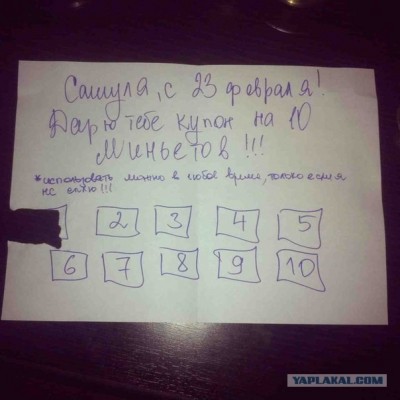 Сашуля, с 23 февраля!
Дарю тебе купон на 10
Миньетов !!!
*использовать можно в любое время, только если я
не сплю!!!
2 3 4 5
6 7 8 9 10
YAPLAKAL.COM